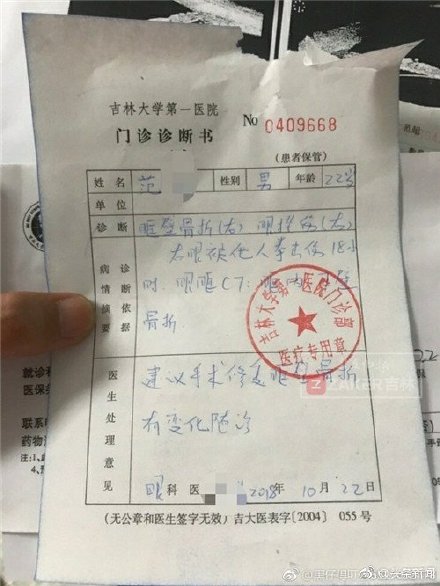 吉林大学第一医院
门诊诊断书
No 0409668
(患者保管)
姓名 范 性别 男 年龄 22岁
单位
诊断 眶壁骨折(右) 眼挫伤(右)
病情摘要 诊断依据
右眼被他人拳击伤18小
时. 眼眶CT: 眶内壁
骨折.
吉林大学第一医院门诊部
医疗专用章
医生处理意见
建议手术修复眶壁骨折
有变化随诊
ZAKER吉林
眼科 医 2018年10月22日
(无公章和医生签字无效) 吉大医表字[2004] 055号
就诊
医保
联系
药物
注: 1.
@头条新闻